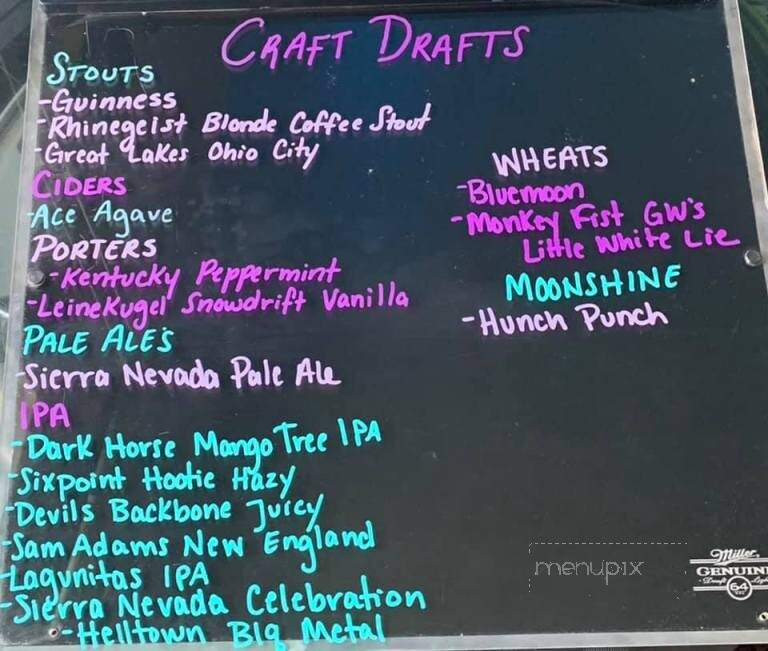 CRAFT DRAFTS
STOUTS
-Guinness
-Rhinegeist Blonde Coffee Stout
-Great Lakes Ohio City
CIDERS
-Ace Agave
PORTERS
-Kentucky Peppermint
-Leinekugel Snowdrift Vanilla
PALE ALE'S
-Sierra Nevada Pale Ale
IPA
-Dark Horse Mango Tree IPA
-Sixpoint Hootie Hazy
-Devils Backbone Juicy
-Sam Adams New England
-Lagunitas IPA
-Sierra Nevada Celebration
-Helltown Big Metal
WHEATS
-Bluemoon
-Monkey Fist GW's
Little White Lie
MOONSHINE
-Hunch Punch
menupix
Miller
GENUINE
Draft 64 Light